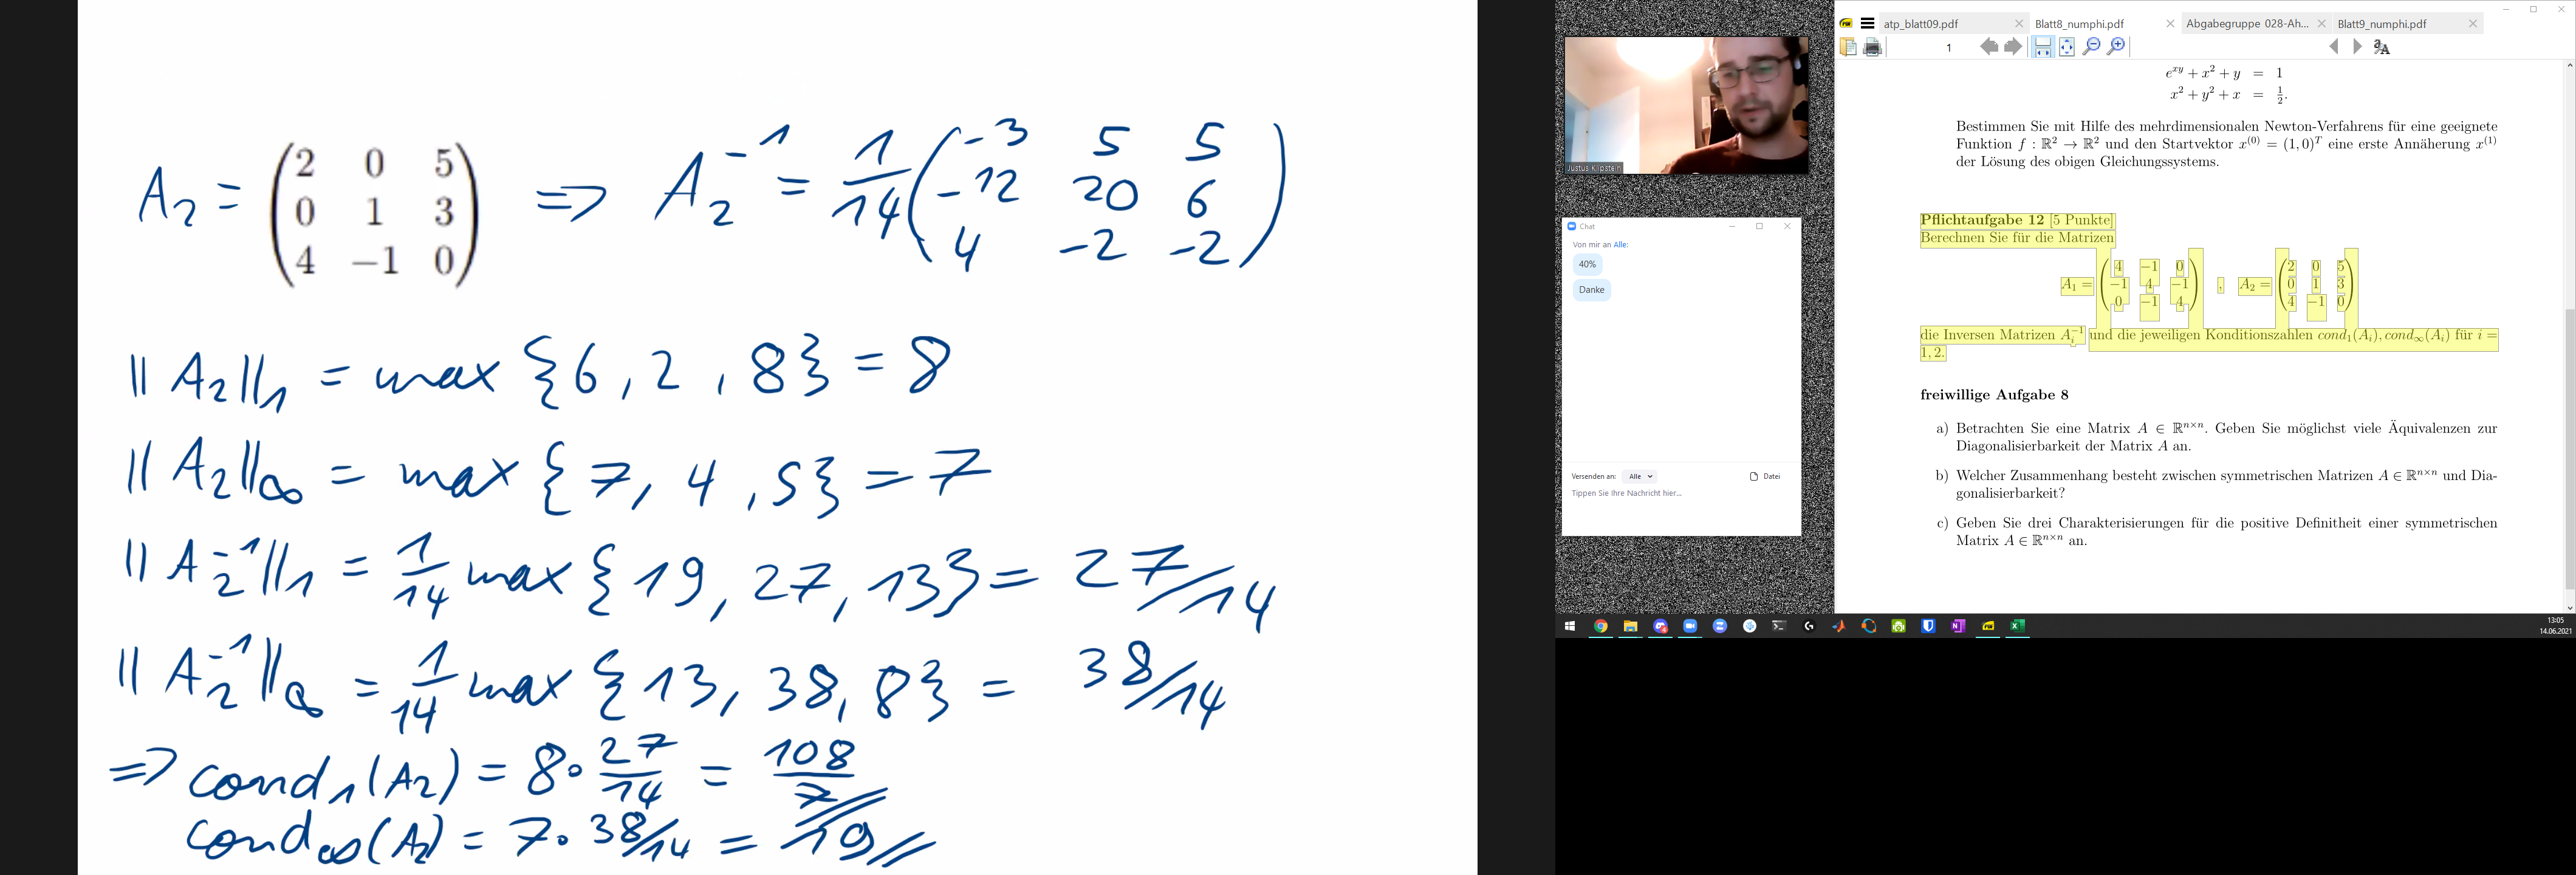 A₂ = (2 0 5; 0 1 3; 4 −1 0) => A₂⁻¹ = 1/14 (-3 5 5; -12 20 6; 4 -2 -2)
|| A₂ ||₁ = max {6, 2, 8} = 8
|| A₂ ||∞ = max {7, 4, 5} = 7
|| A₂⁻¹ ||₁ = 1/14 max {19, 27, 13} = 27/14
|| A₂⁻¹ ||∞ = 1/14 max {13, 38, 8} = 38/14
=> cond₁(A₂) = 8 · 27/14 = 108/7
cond∞(A₂) = 7 · 38/14 = 19
Justus Klipstein
Chat
Von mir an Alle:
40%
Danke
Versenden an: Alle Datei
Tippen Sie Ihre Nachricht hier...
atp_blatt09.pdf Blatt8_numphi.pdf Abgabegruppe 028-Ah... Blatt9_numphi.pdf
1
e^{xy} + x² + y = 1
x² + y² + x = 1/2.
Bestimmen Sie mit Hilfe des mehrdimensionalen Newton-Verfahrens für eine geeignete
Funktion f : ℝ² → ℝ² und den Startvektor x⁽⁰⁾ = (1, 0)ᵀ eine erste Annäherung x⁽¹⁾
der Lösung des obigen Gleichungssystems.
Pflichtaufgabe 12 [5 Punkte]
Berechnen Sie für die Matrizen
A₁ = (4 −1 0; −1 4 −1; 0 −1 4) , A₂ = (2 0 5; 0 1 3; 4 −1 0)
die Inversen Matrizen Aᵢ⁻¹ und die jeweiligen Konditionszahlen cond₁(Aᵢ), cond∞(Aᵢ) für i =
1, 2.
freiwillige Aufgabe 8
a) Betrachten Sie eine Matrix A ∈ ℝⁿˣⁿ. Geben Sie möglichst viele Äquivalenzen zur
Diagonalisierbarkeit der Matrix A an.
b) Welcher Zusammenhang besteht zwischen symmetrischen Matrizen A ∈ ℝⁿˣⁿ und Dia-
gonalisierbarkeit?
c) Geben Sie drei Charakterisierungen für die positive Definitheit einer symmetrischen
Matrix A ∈ ℝⁿˣⁿ an.
13:05
14.06.2021